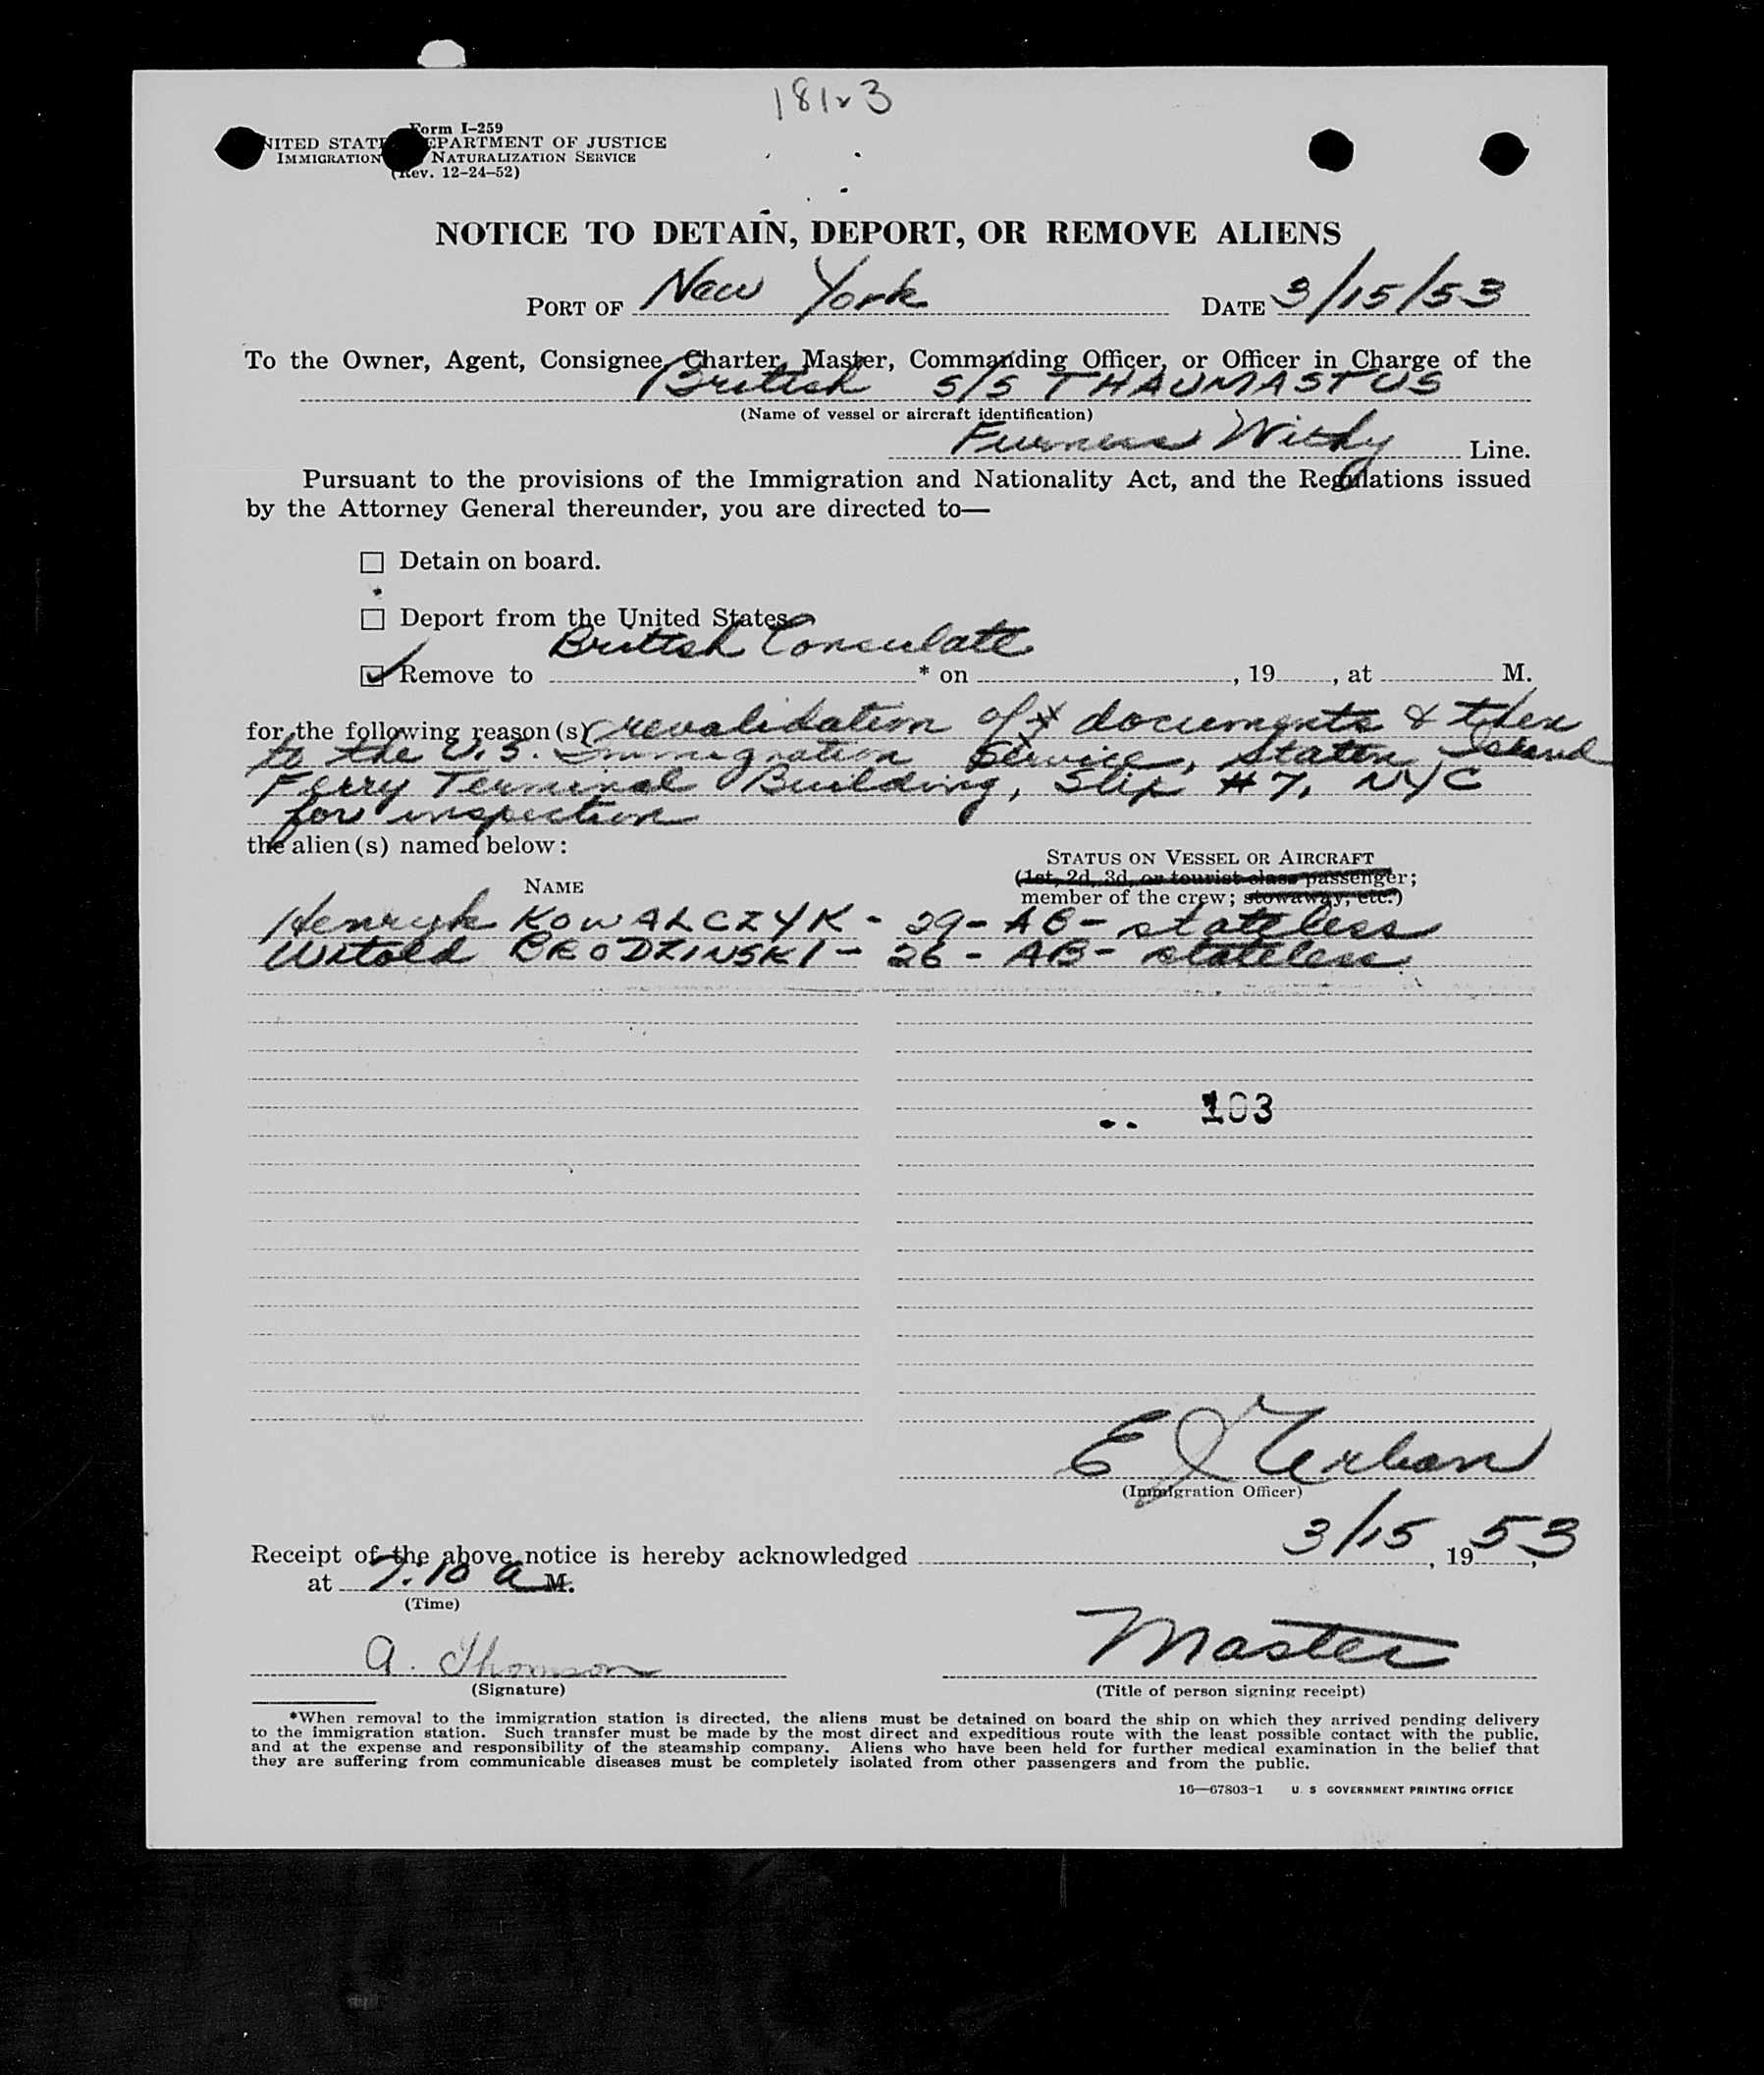 181v3
Form I-259
UNITED STATES DEPARTMENT OF JUSTICE
IMMIGRATION NATURALIZATION SERVICE
(Rev. 12-24-52)
NOTICE TO DETAIN, DEPORT, OR REMOVE ALIENS
PORT OF New York DATE 3/15/53
To the Owner, Agent, Consignee, Charter, Master, Commanding Officer, or Officer in Charge of the
British S/S THAUMASTUS
(Name of vessel or aircraft identification)
Furness Withy Line.
Pursuant to the provisions of the Immigration and Nationality Act, and the Regulations issued
by the Attorney General thereunder, you are directed to—
☐ Detain on board.
☐ Deport from the United States.
☑ Remove to British Consulate * on , 19 , at M.
for the following reason(s) revalidation of documents & then
to the U.S. Immigration Service, Staten Island
Ferry Terminal Building, Slip #7, NYC
for inspection
the alien(s) named below:
NAME
STATUS ON VESSEL OR AIRCRAFT
(1st, 2d, 3d, or tourist class passenger;
member of the crew; stowaway, etc.)
Henryk KOWALCZYK - 29 - AB - stateless
Witold BRODZINSKI - 26 - AB - stateless
103
E J Urban
(Immigration Officer)
Receipt of the above notice is hereby acknowledged 3/15, 1953,
at 7:10 a M.
(Time)
A. Thomson
(Signature)
Master
(Title of person signing receipt)
*When removal to the immigration station is directed, the aliens must be detained on board the ship on which they arrived pending delivery
to the immigration station. Such transfer must be made by the most direct and expeditious route with the least possible contact with the public,
and at the expense and responsibility of the steamship company. Aliens who have been held for further medical examination in the belief that
they are suffering from communicable diseases must be completely isolated from other passengers and from the public.
16—67803-1 U. S. GOVERNMENT PRINTING OFFICE